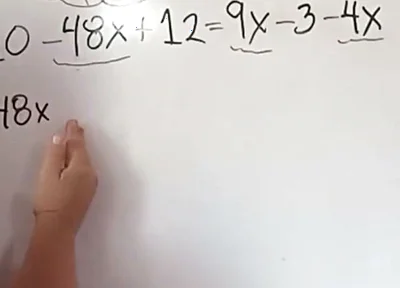 0 - 48x + 12 = 9x - 3 - 4x
48x